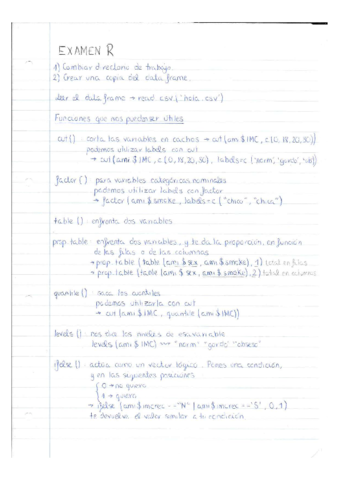 EXAMEN R
1) Cambiar directorio de trabajo.
2) Crear una copia del data frame.
leer el data frame → read.csv ("hola.csv")
Funciones que nos pueden ser útiles
cut() : corta las variables en cachos → cut (ami $ IMC, c (0, 18, 20, 30))
podemos utilizar labels con cut
→ cut (ami $ IMC, c (0, 18, 20, 30), labels=c ("norm", "gordo",
factor () : para variables categóricas nominales
podemos utilizar labels con factor
→ factor (ami $ smoke, labels=c ("chico", "chica")
table () : enfrenta dos variables
prop. table : enfrenta dos variables, y te da la proporción, en función
de las filas o de las columnas
→ prop. table (table (ami $ sex, ami $ smoke), 1) total en filas
→ prop. table (table (ami $ sex, ami $ smoke), 2) total en columnas
quantile () : saca los cuantiles
podemos utilizarla con cut
→ cut (ami $ IMC, quantile (ami $ IMC))
levels () : nos da los niveles de esa variable
levels (ami $ IMC) "norm" "gordo" "obeso"
ifelse () : actúa como un vector lógico. Pones una condición,
y en las siguientes posiciones
0 → no quiero
1 → quiero
→ ifelse (ami $ == "N" | ami $ == "S", 0, 1)
te devuelve el valor similar a tu condición.